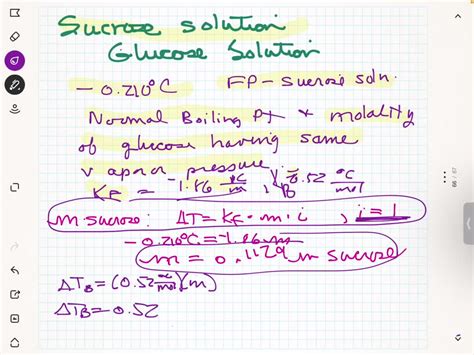 Sucrose solution
Glucose Solution
-0.210°C FP - Sucrose soln.
Normal Boiling Pt & molality
of glucose having same
vapor pressure.
Kf = -1.86 °C/m, KB = 0.52 °C/mol
m sucrose: ΔT = Kf · m · i , i = 1
-0.210°C = -1.86 m
m = 0.1129 m sucrose
ΔTB = (0.52 °C/mol)(m)
ΔTB = 0.52
66 / 67